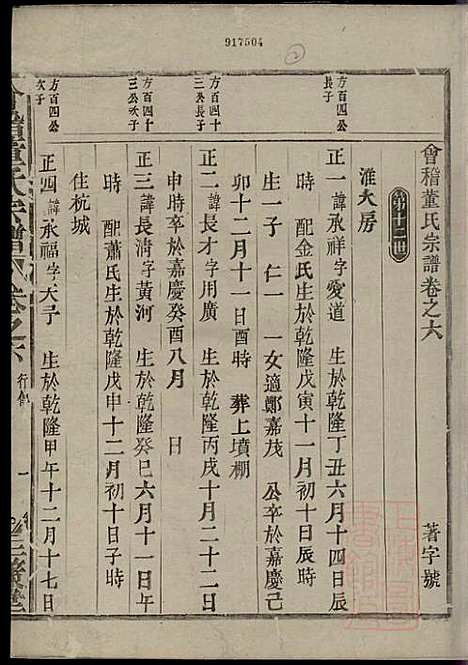 917504
2
會稽董氏宗譜卷之六
著字號
第十二世
淮大房
方百四公長子
正一諱承祥字愛道 生於乾隆丁丑六月十四日辰
時 配金氏生於乾隆戊寅十一月初十日辰時
生一子 仁一 一女適鄭嘉茂 公卒於嘉慶己
卯十二月十一日酉時 葬上墳棚
方百四十三公長子
正二諱長才字用廣 生於乾隆丙戌十月二十二日
申時卒於嘉慶癸酉八月 日
方百四十三公次子
正三諱長清字黃河 生於乾隆癸巳六月十一日午
時 配蕭氏生於乾隆戊申十二月初十日子時
住杭城
方百四公次子
正四諱承福字天予 生於乾隆甲午十二月十七日
會稽董氏宗譜
卷之六
行
一
三